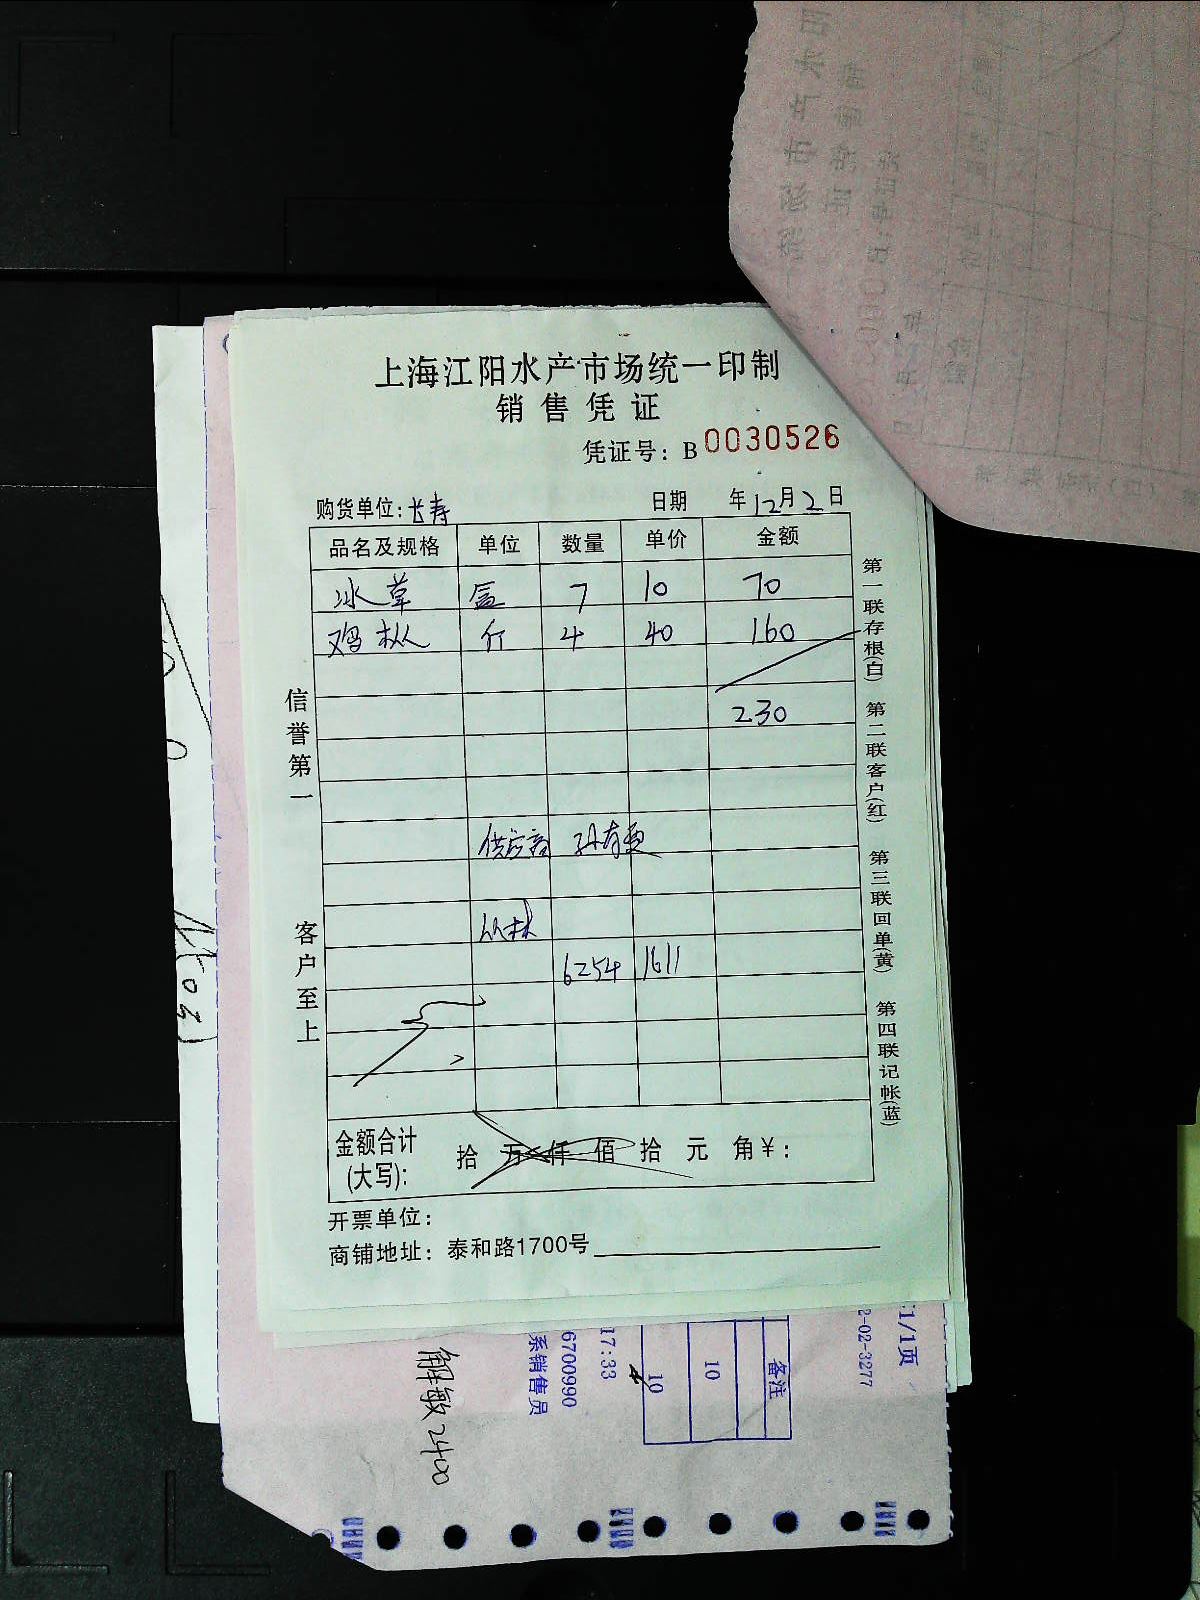 上海江阳水产市场统一印制
销售凭证
凭证号：B 0030526
购货单位：长寿 日期 年12月2日
品名及规格 单位 数量 单价 金额
冰草 盒 7 10 70
鸡枞 斤 4 40 160
230
供应商 孙有更
丛林
6254 1611
金额合计(大写)： 拾 万 仟 佰 拾 元 角 ¥：
开票单位：
商铺地址：泰和路1700号
信誉第一
客户至上
第一联存根(白) 第二联客户(红) 第三联回单(黄) 第四联记帐(蓝)
1/1页
2-02-3277
备注
10
10
17:33
6700990
系销售员
解敏2400